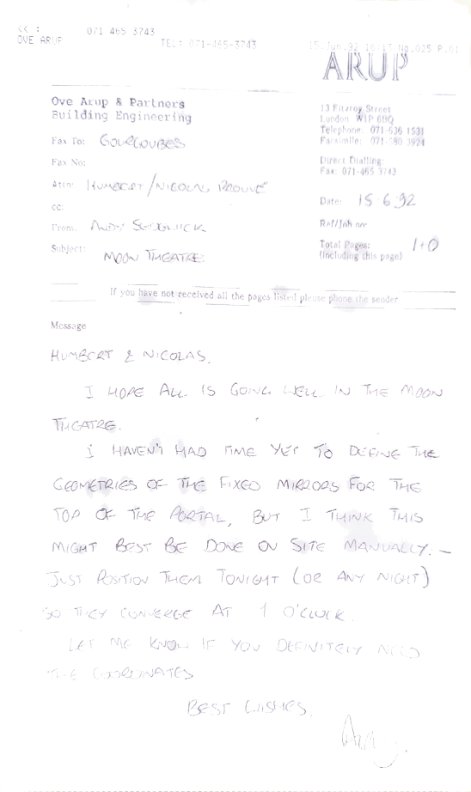 071 465 3743
OVE ARUP TEL: 071-465-3743 15. Jun. 92 No. 025 P. 01
ARUP
Ove Arup & Partners
Building Engineering
13 Fitzroy Street
London W1P 6BQ
Telephone: 071-636 1531
Facsimile: 071-580 3924
Direct Dialling
Fax: 071-465 3743
Fax To: GOURGOUBES
Fax No:
Attn: HUMBERT/NICOLAS
cc:
Date: 15 6 92
From: ANDY SEDGWICK
Ref/Job no:
Subject: MOON THEATRE
Total Pages: 1+0
(including this page)
If you have not received all the pages listed please phone the sender
Message
HUMBERT & NICOLAS.
I HOPE ALL IS GOING WELL IN THE MOON
THEATRE.
I HAVEN'T HAD TIME YET TO DEFINE THE
GEOMETRIES OF THE FIXED MIRRORS FOR THE
TOP OF THE PORTAL, BUT I THINK THIS
MIGHT BEST BE DONE ON SITE MANUALLY. –
JUST POSITION THEM TONIGHT (OR ANY NIGHT)
SO THEY CONVERGE AT 1 O'CLOCK.
LET ME KNOW IF YOU DEFINITELY NEED
THE COORDINATES
BEST WISHES,
Andy.